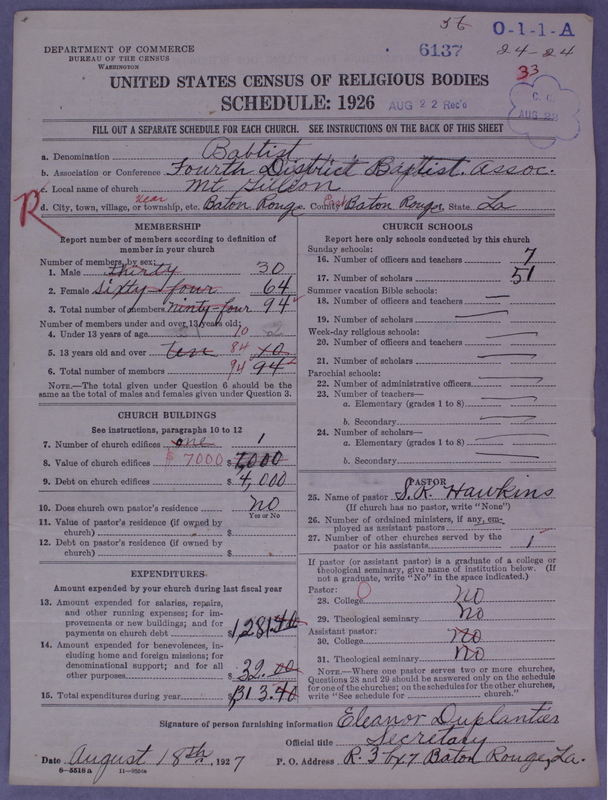 36 O-1-1-A
DEPARTMENT OF COMMERCE 6137 24-24
BUREAU OF THE CENSUS
WASHINGTON 33
UNITED STATES CENSUS OF RELIGIOUS BODIES
SCHEDULE: 1926 AUG 22 Rec'd C. C. AUG 23
FILL OUT A SEPARATE SCHEDULE FOR EACH CHURCH. SEE INSTRUCTIONS ON THE BACK OF THIS SHEET
a. Denomination Babtist
b. Association or Conference Fourth District Baptist. Assoc.
c. Local name of church Mt Gilleon
R d. City, town, village, or township, etc. near Baton Rouge County East Baton Rouge, State La
MEMBERSHIP
Report number of members according to definition of
member in your church
Number of members, by sex:
1. Male thirty 30
2. Female sixty-four 64
3. Total number of members ninty-four 94
Number of members under and over 13 years old:
4. Under 13 years of age 10
5. 13 years old and over ten 84 10
6. Total number of members 94 94
NOTE.—The total given under Question 6 should be the
same as the total of males and females given under Question 3.
CHURCH BUILDINGS
See instructions, paragraphs 10 to 12
7. Number of church edifices one 1
8. Value of church edifices $ 7000 $ 7,000
9. Debt on church edifices $ 4,000
10. Does church own pastor's residence no
Yes or No
11. Value of pastor's residence (if owned by
church) $
12. Debt on pastor's residence (if owned by
church) $
EXPENDITURES
Amount expended by your church during last fiscal year
13. Amount expended for salaries, repairs,
and other running expenses; for im-
provements or new buildings; and for
payments on church debt $1,281.40
14. Amount expended for benevolences, in-
cluding home and foreign missions; for
denominational support; and for all
other purposes $ 32.00
15. Total expenditures during year $1,313.40
CHURCH SCHOOLS
Report here only schools conducted by this church
Sunday schools:
16. Number of officers and teachers 7
17. Number of scholars 51
Summer vacation Bible schools:
18. Number of officers and teachers —
19. Number of scholars —
Week-day religious schools:
20. Number of officers and teachers —
21. Number of scholars —
Parochial schools:
22. Number of administrative officers —
23. Number of teachers—
a. Elementary (grades 1 to 8) —
b. Secondary —
24. Number of scholars—
a. Elementary (grades 1 to 8) —
b. Secondary —
PASTOR
25. Name of pastor S. R. Hawkins
(If church has no pastor, write "None")
26. Number of ordained ministers, if any, em-
ployed as assistant pastors
27. Number of other churches served by the
pastor or his assistants 1
If pastor (or assistant pastor) is a graduate of a college or
theological seminary, give name of institution below. (If
not a graduate, write "No" in the space indicated.)
Pastor: 0
28. College no
29. Theological seminary no
Assistant pastor:
30. College no
31. Theological seminary no
NOTE.—Where one pastor serves two or more churches,
Questions 28 and 29 should be answered only on the schedule
for one of the churches; on the schedules for the other churches,
write "See schedule for church."
Signature of person furnishing information Eleanor Duplantier
Official title Secretary
Date August 18th, 1927 P. O. Address R. 3 Baton Rouge, La.
8—5518a